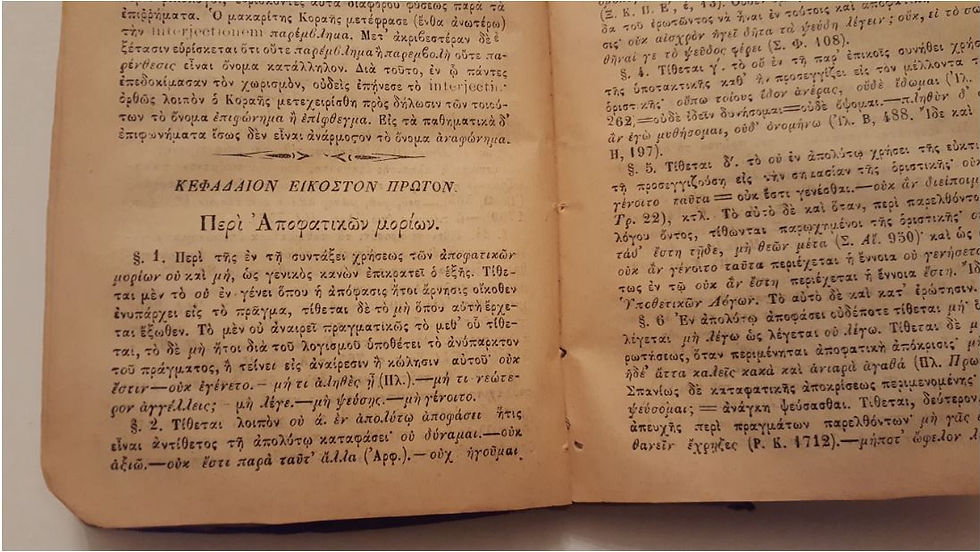 ἐπιῤῥήματα. Ὁ μακαρίτης Κοραῆς μετέφρασε (ἔνθα ἀνωτέρω)
τὴν interjectionem παρέμβλημα. Μετ' ἀκριβεστέραν δὲ ἐ-
ξέτασιν εὑρίσκεται ὅτι οὔτε παρέμβλημα ἢ παρεμβολὴ οὔτε πα-
ρένθεσις εἶναι ὄνομα κατάλληλον. Διὰ τοῦτο, ἐν ᾧ πάντες
ἐπεδοκίμασαν τὸν χωρισμὸν, οὐδεὶς ἐπῄνεσε τὸ interjectio·
ὀρθῶς λοιπὸν ὁ Κοραῆς μετεχειρίσθη πρὸς δήλωσιν τῶν τοιού-
των τὸ ὄνομα ἐπιφώνημα ἢ ἐπίφθεγμα. Εἰς τὰ παθηματικὰ δ'
ἐπιφωνήματα ἴσως δὲν εἶναι ἀνάρμοστον τὸ ὄνομα ἀναφώνημα.
ΚΕΦΑΛΑΙΟΝ ΕΙΚΟΣΤΟΝ ΠΡΩΤΟΝ.
Περὶ Ἀποφατικῶν μορίων.
§. 1. Περὶ τῆς ἐν τῇ συντάξει χρήσεως τῶν ἀποφατικῶν
μορίων οὐ καὶ μή, ὡς γενικὸς κανὼν ἐπικρατεῖ ὁ ἑξῆς. Τίθε-
ται μὲν τὸ οὐ ἐν γένει ὅπου ἡ ἀπόφασις ἤτοι ἄρνησις οἴκοθεν
ἐνυπάρχει εἰς τὸ πρᾶγμα, τίθεται δὲ τὸ μὴ ὅπου αὐτὴ ἔρχε-
ται ἔξωθεν. Τὸ μὲν οὐ ἀναιρεῖ πραγματικῶς τὸ μεθ' οὗ τίθε-
ται, τὸ δὲ μὴ ἤτοι διὰ τοῦ λογισμοῦ ὑποθέτει τὸ ἀνύπαρκτον
τοῦ πράγματος, ἢ τείνει εἰς ἀναίρεσιν ἢ κώλησιν αὐτοῦ· οὐκ
ἔστιν—οὐκ ἐγένετο.— μή τι ἀληθὲς ᾖ (Πλ.).—μή τι νεώτε-
ρον ἀγγέλλεις; — μὴ λέγε.—μὴ ψεύσῃς.—μὴ γένοιτο.
§. 2. Τίθεται λοιπὸν οὐ ά. ἐν ἀπολύτῳ ἀποφάσει ἥτις
εἶναι ἀντίθετος τῇ ἀπολύτῳ καταφάσει· οὐ δύναμαι.—οὐκ
ἀξιῶ.—οὐκ ἔστι παρὰ ταῦτ' ἄλλα (Ἀρφ.).—οὐχ ἡγοῦμαι
δα τοῦ ἐρωτῶντος νὰ ᾖναι ἐν τούτοις καὶ
σις· οὐκ αἰσχρὸν ἡγεῖ δῆτα τὰ ψεύδη λέγειν; οὐκ, εἰ τὸ
θῆναί γε τὸ ψεῦδος φέρει (Σ. Φ. 108).
§. 4. Τίθεται γ΄. τὸ οὐ ἐν τῇ παρ' ἐπικοῖς συνήθει
τῆς ὑποτακτικῆς καθ' ἣν προσεγγίζει εἰς τὸν μέλλοντα
ὁριστικῆς· οὔπω τοίους ἴδον ἀνέρας, οὐδὲ ἴδωμαι (Ἰλ.
262,=οὐδὲ ἰδεῖν δυνήσομαι=οὐδὲ ὄψομαι.—πληθὺν δ'
ἂν ἐγὼ μυθήσομαι, οὐδ' ὀνομήνω (Ἰλ. Β, 488. Ἴδε καὶ
Η, 197).
§. 5. Τίθεται δ΄. τὸ οὐ ἐν ἀπολύτῳ χρήσει τῆς
τῇ προσεγγιζούσῃ εἰς τὴν σημασίαν τῆς ὁριστικῆς·
γένοιτο ταῦτα= οὐκ ἔστι γενέσθαι.—οὐκ ἂν
Τρ. 22), κτλ. Τὸ αὐτὸ δὲ καὶ ὅταν, περὶ
λόγου ὄντος, τίθωνται παρῳχημένοι τῆς ὁριστικῆς·
τάδ' ἔστη τῇδε, μὴ θεῶν μέτα (Σ. Αἴ. 950)· καὶ
οὐκ ἂν γένοιτο ταῦτα περιέχεται ἡ ἔννοια οὐ
τως ἐν τῷ οὐκ ἂν ἔστη περιέχεται ἡ ἔννοια ἔστη.
Ὑποθετικῶν Λόγων. Τὸ αὐτὸ δὲ καὶ κατ' ἐρώτησιν.
§. 6 Ἐν ἀπολύτῳ ἀποφάσει οὐδέποτε τίθεται μή·
λέγεται μὴ λέγω ὡς λέγεται οὐ λέγω. Τίθεται δὲ
ρωτήσεως, ὅταν περιμένηται ἀποφατικὴ ἀπόκρισις·
ἡδέ' ἄττα καλεῖς κακὰ καὶ ἀνιαρὰ ἀγαθά (Πλ.
Σπανίως δὲ καταφατικῆς ἀποκρίσεως περιμενομένης·
ψεύσομαι; = ἀνάγκη ψεύσασθαι. Τίθεται, δεύτερον,
ἀπευχῆς περὶ πραγμάτων παρελθόντων· μὴ γὰρ
θανεῖν ἔχρῃζες (Ρ. Κ. 1712).—μήποτ' ὤφελον